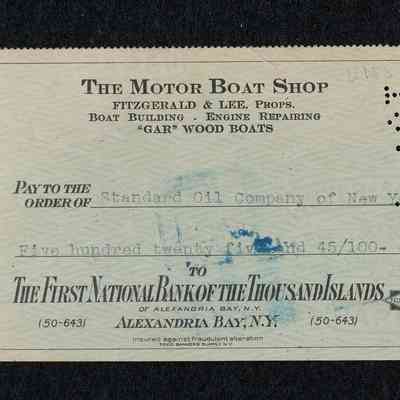 THE MOTOR BOAT SHOP
FITZGERALD & LEE, PROPS.
BOAT BUILDING - ENGINE REPAIRING
"GAR" WOOD BOATS
PAY TO THE
ORDER OF Standard Oil Company of New Y
Five hundred twenty five and 45/100-
TO
THE FIRST NATIONAL BANK OF THE THOUSAND ISLANDS
OF ALEXANDRIA BAY, N.Y.
(50-643) ALEXANDRIA BAY, N.Y. (50-643)
Insured against fraudulent alteration